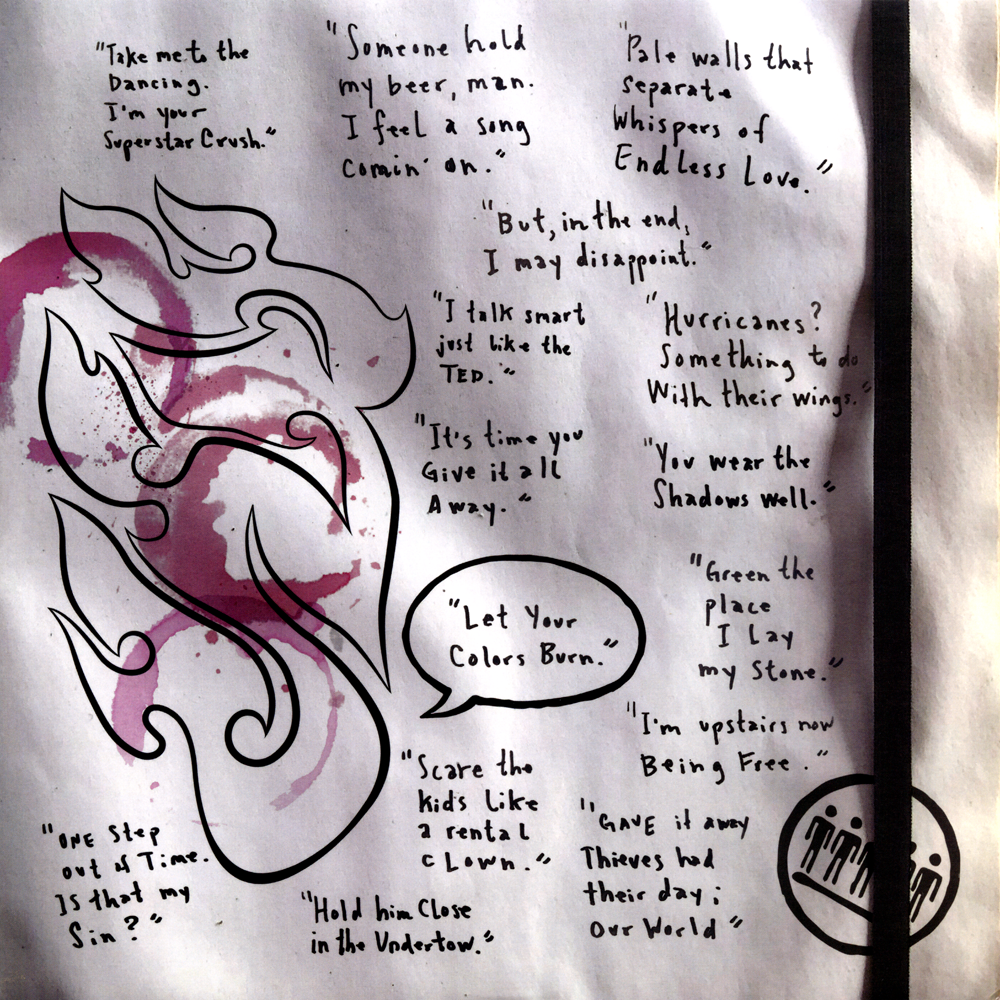 "Take me to the
Dancing.
I'm your
Superstar Crush."
"Someone hold
my beer, man.
I feel a song
comin' on."
"Pale walls that
separate
Whispers of
Endless Love."
"But, in the end,
I may disappoint."
"I talk smart
just like the
TED."
"Hurricanes?
Something to do
With their wings."
"It's time you
Give it all
Away."
"You wear the
Shadows well."
"Let Your
Colors Burn."
"Green the
place
I Lay
my Stone."
"I'm upstairs now
Being Free."
"Scare the
kids Like
a rental
cLown."
"GAVE it away
Thieves had
their day;
Our World"
"ONE Step
out of Time.
Is that my
Sin?"
"Hold him Close
in the Undertow."